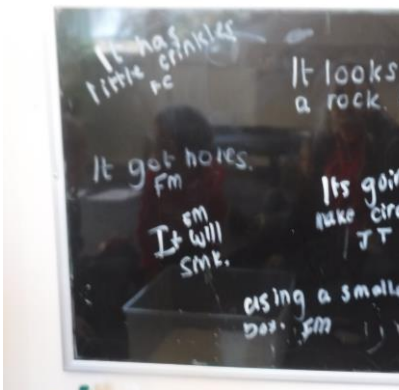 It has
little crinkles
FC
It looks
a rock.
It got holes.
FM
Its goin
make circ
JT
FM
It will
smk.
using a smalle
box. FM